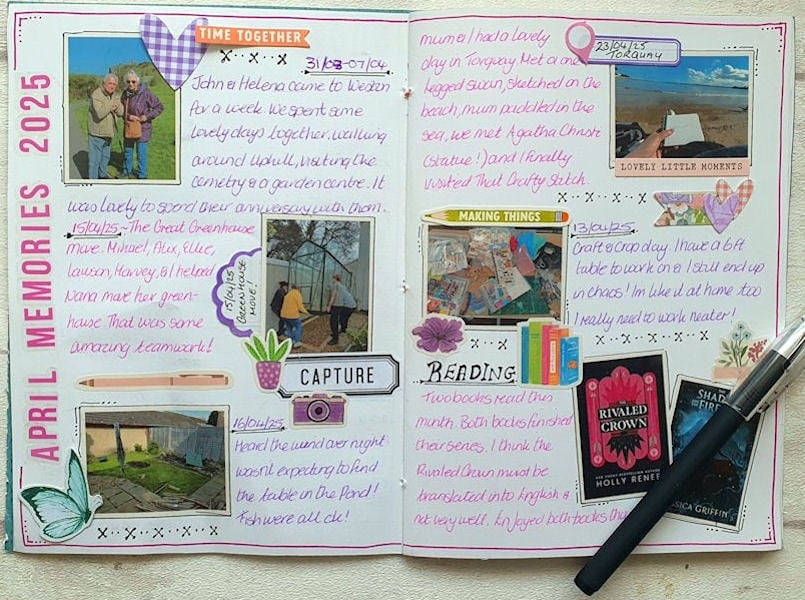 APRIL MEMORIES 2025
TIME TOGETHER
31/03-07/04
John & Helena came to Weston
for a week. We spent some
lovely days together. Walking
around Uphill, visiting the
cemetry & a garden centre. It
was lovely to spend their anniversary with them.
15/04/25 ~ The Great Greenhouse
move. Mihael, Alix, Ellie,
Lawson, Harvey, & I helped
Nana move her green-
house. That was some
amazing teamwork!
15/04/25
GREENHOUSE
MOVE!
CAPTURE
16/04/25
Heard the wind over night
wasn't expecting to find
the table in the Pond!
Fish were all ok!
mum & I had a lovely
day in Torquay. Met a one
legged swan, sketched on the
beach, mum paddled in the
sea, we met Agatha Christie
(statue!) and I finally
visited That Crafty Stitch.
23/04/25
TORQUAY
LOVELY LITTLE MOMENTS
MAKING THINGS
13/04/25
Craft & Crop day. I have a 6ft
table to work on & I still end up
in chaos! Im like it at home too
I really need to work neater!
READING
Two books read this
month. Both books finished
their series. I think the
Rivaled Crown must be
translated into English &
not very well. Enjoyed both books
THE
RIVALED
CROWN
HOLLY RENEE
FIRE
GRIFFIN